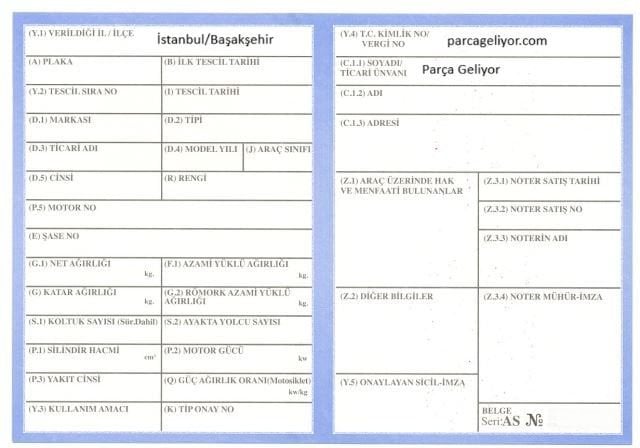 (Y.1) VERİLDİĞİ İL / İLÇE
İstanbul/Başakşehir
(A) PLAKA
(B) İLK TESCİL TARİHİ
(Y.2) TESCİL SIRA NO
(I) TESCİL TARİHİ
(D.1) MARKASI
(D.2) TİPİ
(D.3) TİCARİ ADI
(D.4) MODEL YILI
(J) ARAÇ SINIFI
(D.5) CİNSİ
(R) RENGİ
(P.5) MOTOR NO
(E) ŞASE NO
(G.1) NET AĞIRLIĞI
kg.
(F.1) AZAMİ YÜKLÜ AĞIRLIĞI
kg.
(G) KATAR AĞIRLIĞI
kg.
(G,2) RÖMORK AZAMİ YÜKLÜ
AĞIRLIĞI
kg.
(S.1) KOLTUK SAYISI (Sür.Dahil)
(S.2) AYAKTA YOLCU SAYISI
(P.1) SİLİNDİR HACMİ
cm³
(P.2) MOTOR GÜCÜ
kw
(P.3) YAKIT CİNSİ
(Q) GÜÇ AĞIRLIK ORANI(Motosiklet)
kw/kg
(Y.3) KULLANIM AMACI
(K) TİP ONAY NO
(Y.4) T.C. KİMLİK NO/
VERGİ NO
parcageliyor.com
(C.1.1) SOYADI/
TİCARİ ÜNVANI
Parça Geliyor
(C.1.2) ADI
(C.1.3) ADRESİ
(Z.1) ARAÇ ÜZERİNDE HAK
VE MENFAATİ BULUNANLAR
(Z.3.1) NOTER SATIŞ TARİHİ
(Z.3.2) NOTER SATIŞ NO
(Z.3.3) NOTERİN ADI
(Z.2) DİĞER BİLGİLER
(Z.3.4) NOTER MÜHÜR-İMZA
(Y.5) ONAYLAYAN SİCİL-İMZA
BELGE
Seri:AS №